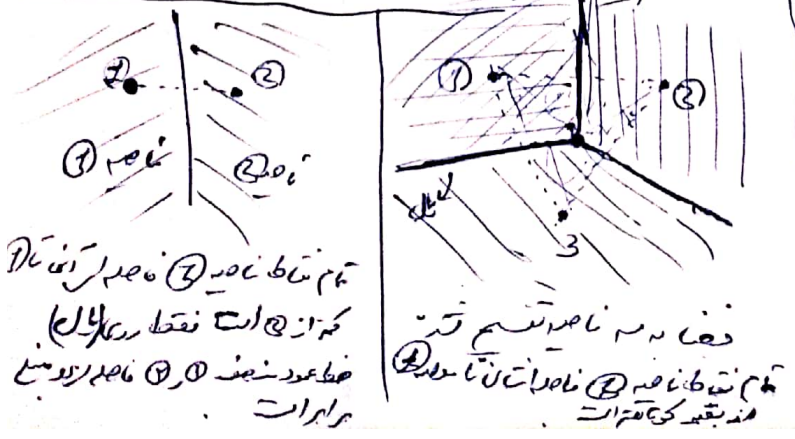 ① ②
ناحیه ① ناحیه ②
تمام نقاط ناحیه ① فاصله تا ①
که از ② است نقطه روی (یال)
خط عمود منصف ① و ② فاصله از دو منبع
برابر است .
① ②
یال
3
فضا به سه ناحیه تقسیم شد
تمام نقاط ناحیه ① فاصله‌شان تا مولد ①
از بقیه کوتاهتر است